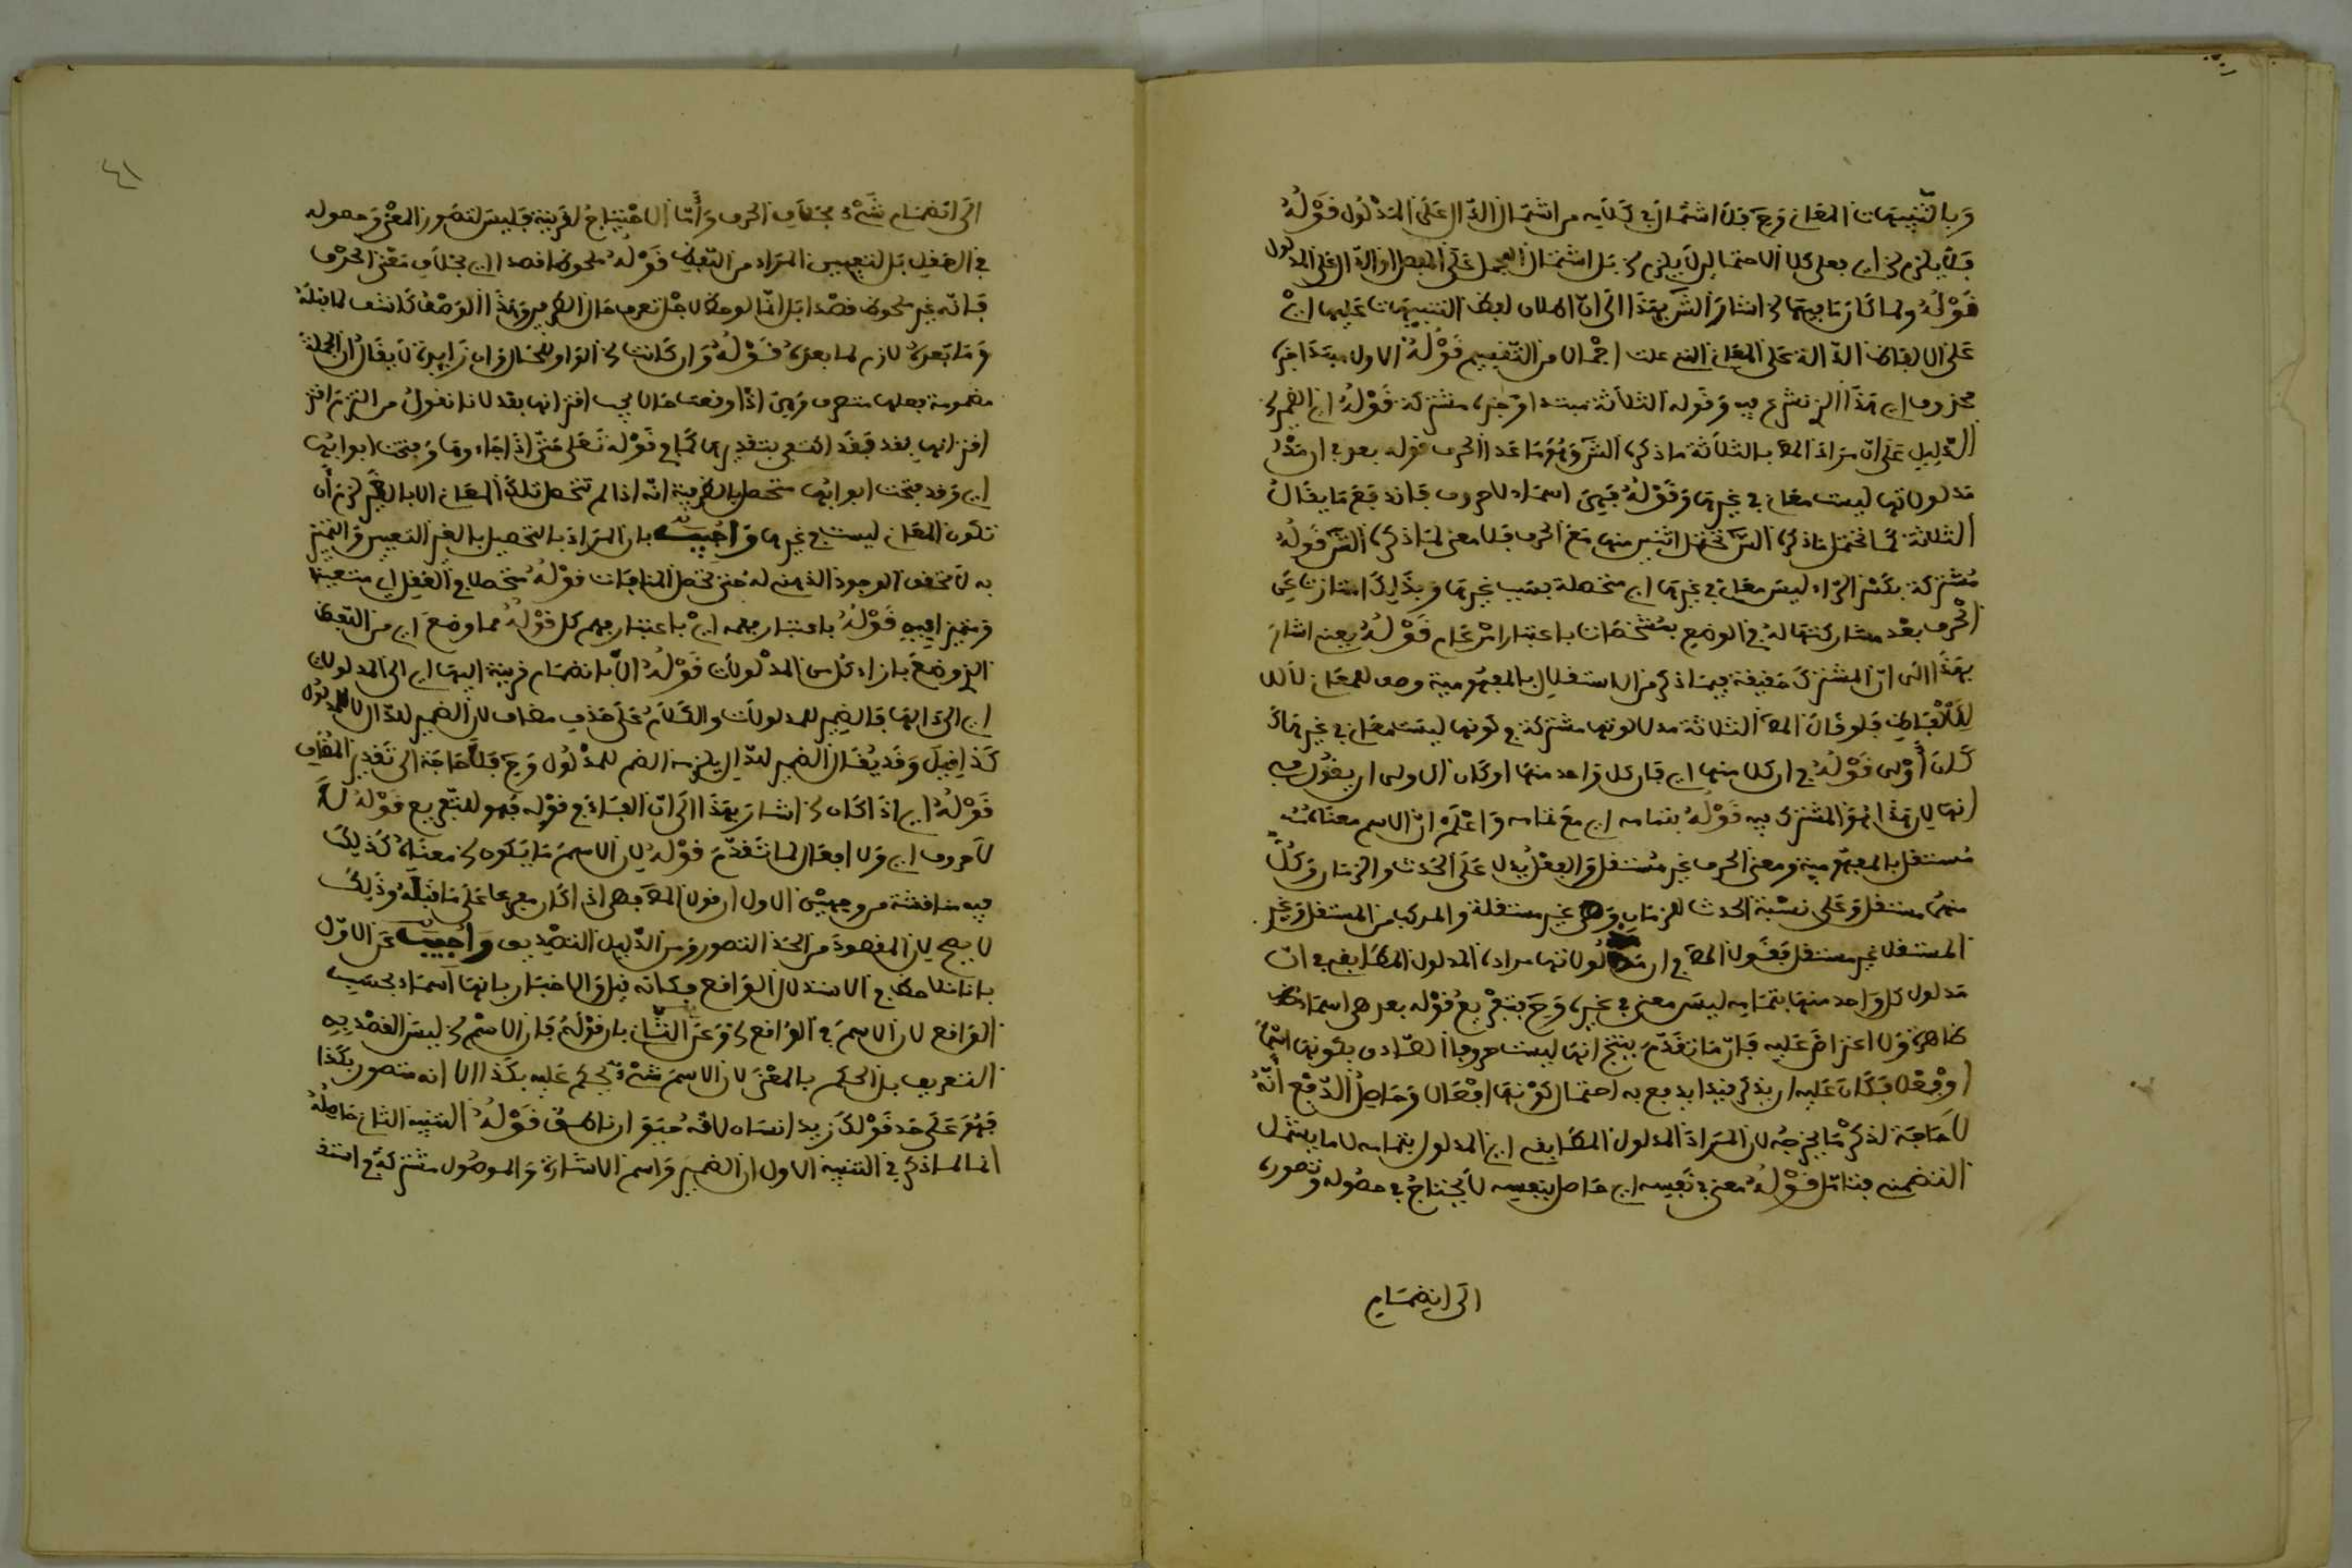 وبالتنبيهات المعاني وح فلا اشتمال في كلامه من اشتمال الدال على المدلول قوله
فلا يلزم الخ اي فعلى كلا الاحتمالين لا يلزم الخ بل اشتمال المجمل على المفصل او الدال على المدلول
قوله ولما كان ما فيها الخ اشار الش بهذا الى ان اطلاق لفظ التنبيهات عليها اي
على الالفاظ الدالة على المعاني التي علمت اجمالا من التقسيم قوله الاول مبتدا خبره
محذوف اي هذا الذي نشرع فيه وقوله الثلاثة مبتدا وخبره مشتركة قوله اي الضمير الخ
الدليل على ان مراد المص بالثلاثة ما ذكره الش وهو ما عدا الحرف قوله بعد في ان
مدلولاتها ليست معان في غيرها وقوله فهي اسماء لا حروف فاندفع ما يقال
الثلاثة كما تحتمل ما ذكره الش تحتمل اثنين منها مع الحرف فلا معنى لما ذكره الش قوله
مشتركة بكسر الراء ليس معان في غيرها اي متحصلة بسبب غيرها وبذلك امتازت عن
الحرف بعد مشاركتها له في الوضع بمشخصات باعتبار امر عام قوله يعني اشار
بهذا الى ان المشترك حقيقة فيما ذكر من الاستقلال بالمفهومية وصف للمعاني لا
للالفاظ فلو قال المص الثلاثة مدلولاتها مشتركة في كونها ليست معان في غيرها
كان اولى قوله في ان كلا منها اي فان كل واحد منها او كان الاولى ان يقول
انها لان هذا هو المشترك فيه قوله بتمامه اي مع تمامه واعلم ان الاسم معناه
مستقل بالمفهومية ومعنى الحرف غير مستقل والفعل يدل على الحدث والزمان وكل
منهما مستقل وعلى نسبة الحدث للزمان وهي غير مستقلة والمركب من المستقل وغير
المستقل غير مستقل فقول المص في ان مدلولاتها مراده المدلول المطابقي في ان
مدلول كل واحد منها بتمامه ليس معنى في غيره وح يتفرع قوله بعد هي اسماء
ظاهر ولا اعتراض عليه فان ما تقدم ينتج انها ليست حروفا الصادق بكونها اسما
او فعلا فكان عليه ان يذكر قيدا يدفع به احتمال كونها افعالا وحاصل الدفع انه
لا حاجة لذكر ما يخرجه لان المراد المدلول المطابقي اي المدلول بتمامه لا ما يشمل
التضمني فتامل قوله معنى في نفسه اي حاصل بنفسه لا يحتاج في حصوله وتصوره
الى انضمام
٤١
الى انضمام شيء بخلاف الحرف واما الاحتياج لقرينة فليس لتصور المعنى وحصوله
في العقل بل لتعيين المراد من اللفظ قوله ملحوظا قصدا اي بخلاف معنى الحرف
فانه غير ملحوظ قصدا بل انما لوحظ لاجل تعرف حال الطرفين وهذا الوصف كاشف لما قبله
وما بعده لازم لما بعده قوله وان كانت الخ الواو للحال وان زايدة لا يقال ان الجملة
فعلها متصرف وهي اذا وقعت حالا يجب اقترانها بقد لانا نقول من التزم
اقترانها بقد فقد اكتفى بتقديرها كما في قوله تعالى حتى اذا جاءوها وفتحت ابوابها
اي وقد فتحت ابوابها متحصلة بالقرينة انه اذا لم تتحصل تلك المعاني الا بالغير لزم ان
تكون المعاني ليست في غيرها واجيب بان المراد بالتحصيل بالغير التعيين والتميز
به لا تحقق الوجود الذهني له حتى تحصل المنافات قوله متحصلا في العقل اي متعينا
ومتميزا فيه قوله باعتبار مهم اي باعتبار فهم كل قوله مما وضع اي من اللفظ
الذي وضع بازاء كل من المدلولات قوله الا بانضمام قرينة اليها اي الى المدلولات
اي الى دالها فالضمير للمدلولات والكلام على حذف مضاف لان الضمير للدال لا للمدلول
كذا قيل وقد يقال الضم للدال يلزمه الضم للمدلول وح فلا حاجة الى تقدير المضاف
قوله اي اذا كان الخ اشار بهذا الى ان الفاء في قوله فهو للتفريع قوله لا
لا حروف اي ولا افعال لما تقدم قوله لان الاسم ما يكون الخ معناه كذلك
فيه مناقشة من وجهين الاول ان قول المص فهي اذا كان مفرعا على ما قبله وذلك
لا يصح لان المقصود من الحد التصور ومن الدليل التصديق واجيب عن الاول
بانا نلاحظ في الاستدلال الواقع وكانه قيل والاخبار بانها اسماء بحسب
الواقع لان الاسم في الواقع الخ وعن الثاني بان قوله فان الاسم الخ ليس القصد به
التعريف بل الحكم بالمعنى لان الاسم شيء يحكم عليه بكذا لا انه متصور بكذا
فهو على حد قولك زيد انسان لانه حيوان ناطق قوله التنبيه الثاني حاصله
انه لما ذكر في التنبيه الاول ان الضمير واسم الاشارة والموصول مشتركة في